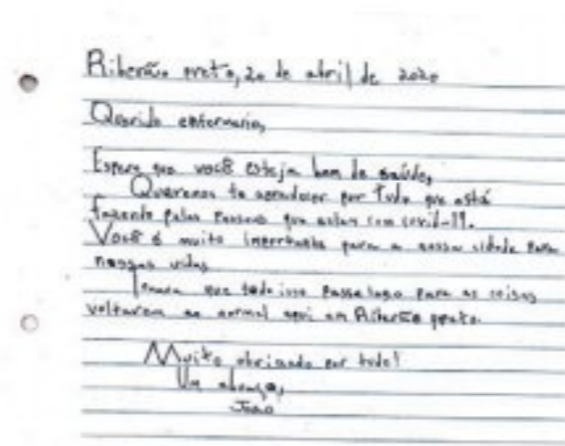 Riberão preto, 20 de abril de 2020
Querido enfermeiro,
Espero que você esteja bem de saúde,
Queremos te agradecer por tudo que está
fazendo pelas pessoas que estam com covid-19.
Você é muito importante para a nossa cidade para
nossas vidas
que tudo isso passe logo para as coisas
voltarem ao normal aqui em Riberão preto.
Muito obrigado por tudo!
Um abraço,
João